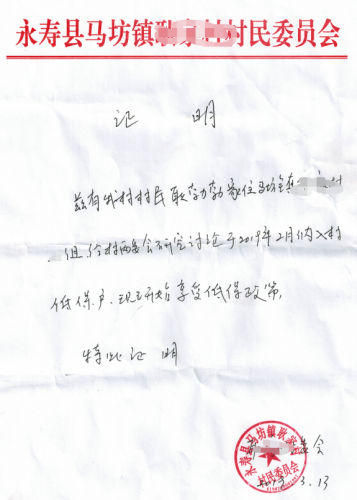 永寿县马坊镇耿 村民委员会
证 明
兹有我村村民耿 家住马坊镇
组 经村两委会研究讨论于2019年2月纳入村
低保户.现已开始享受低保政策,
特此证明
委会
永寿县马坊镇耿
村民委员会
3.13